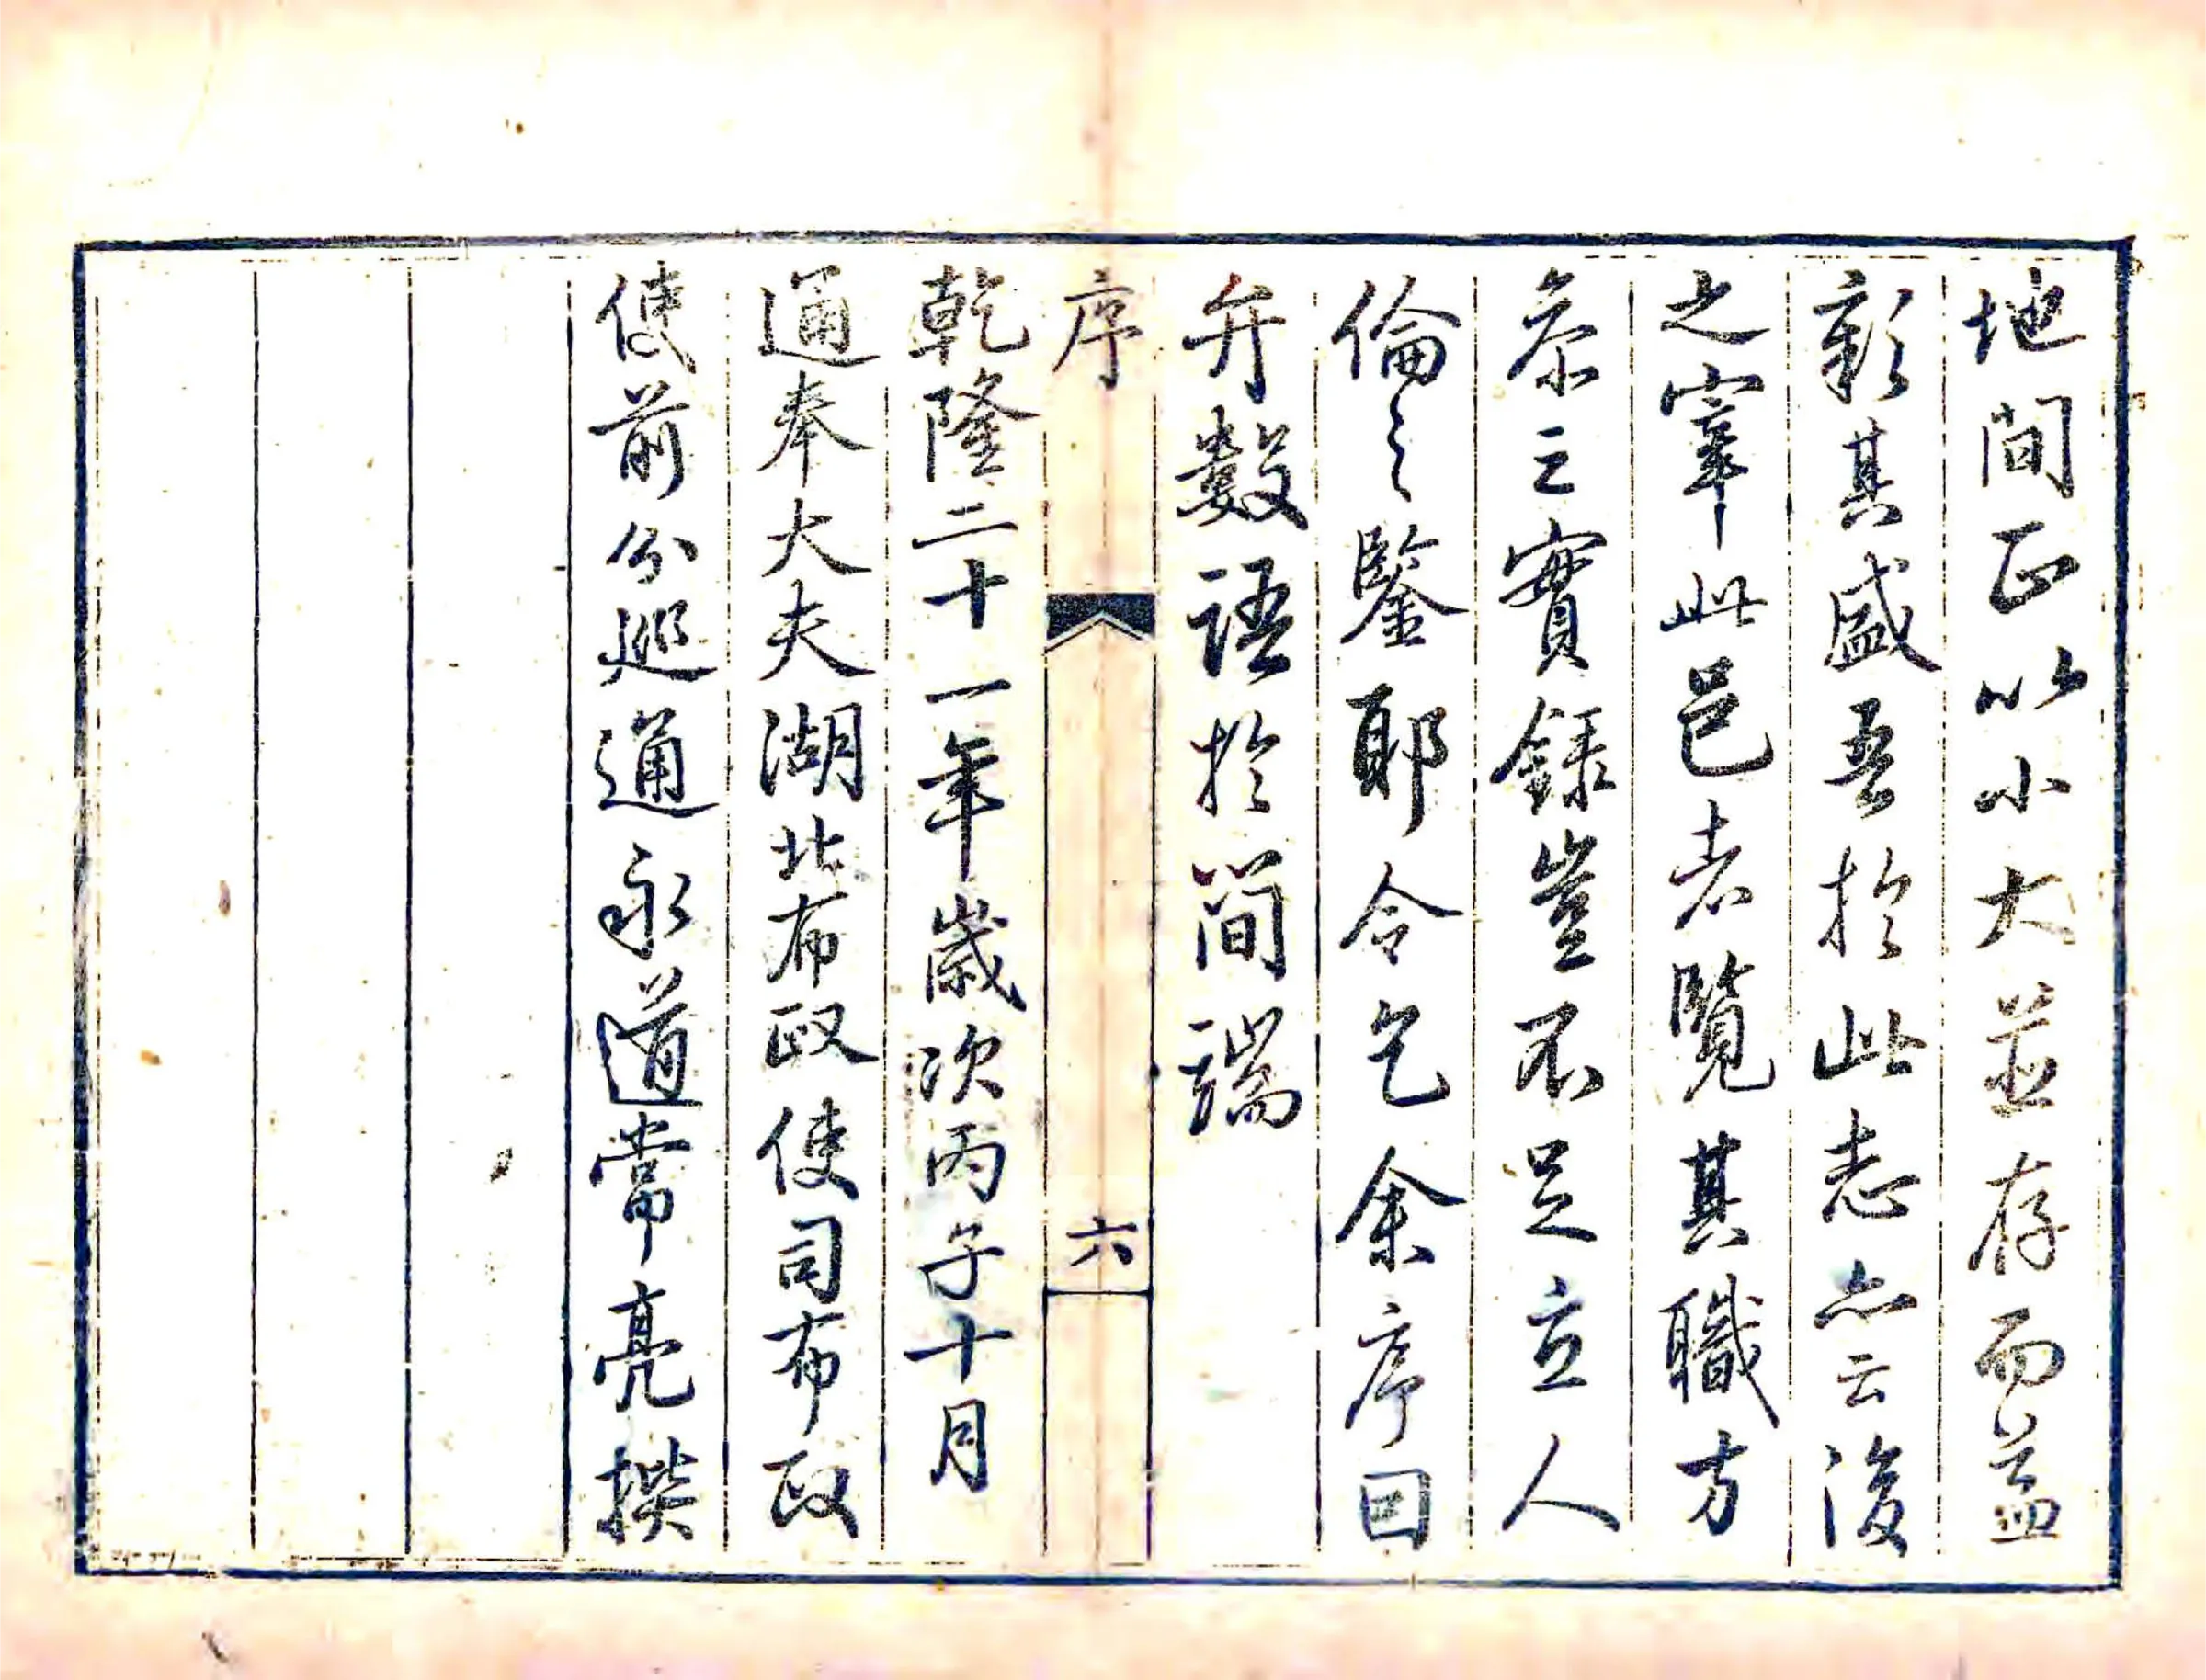 地間正以小大並存而益
彰其盛吾於此志亦云後
之宰此邑者覽其職方
叅之實錄豈不足立人
倫之鑒耶令乞余序因
弁數語於簡端
序
六
乾隆二十一年歲次丙子十月
通奉大夫湖北布政使司布政
使前分巡通永道常亮撰